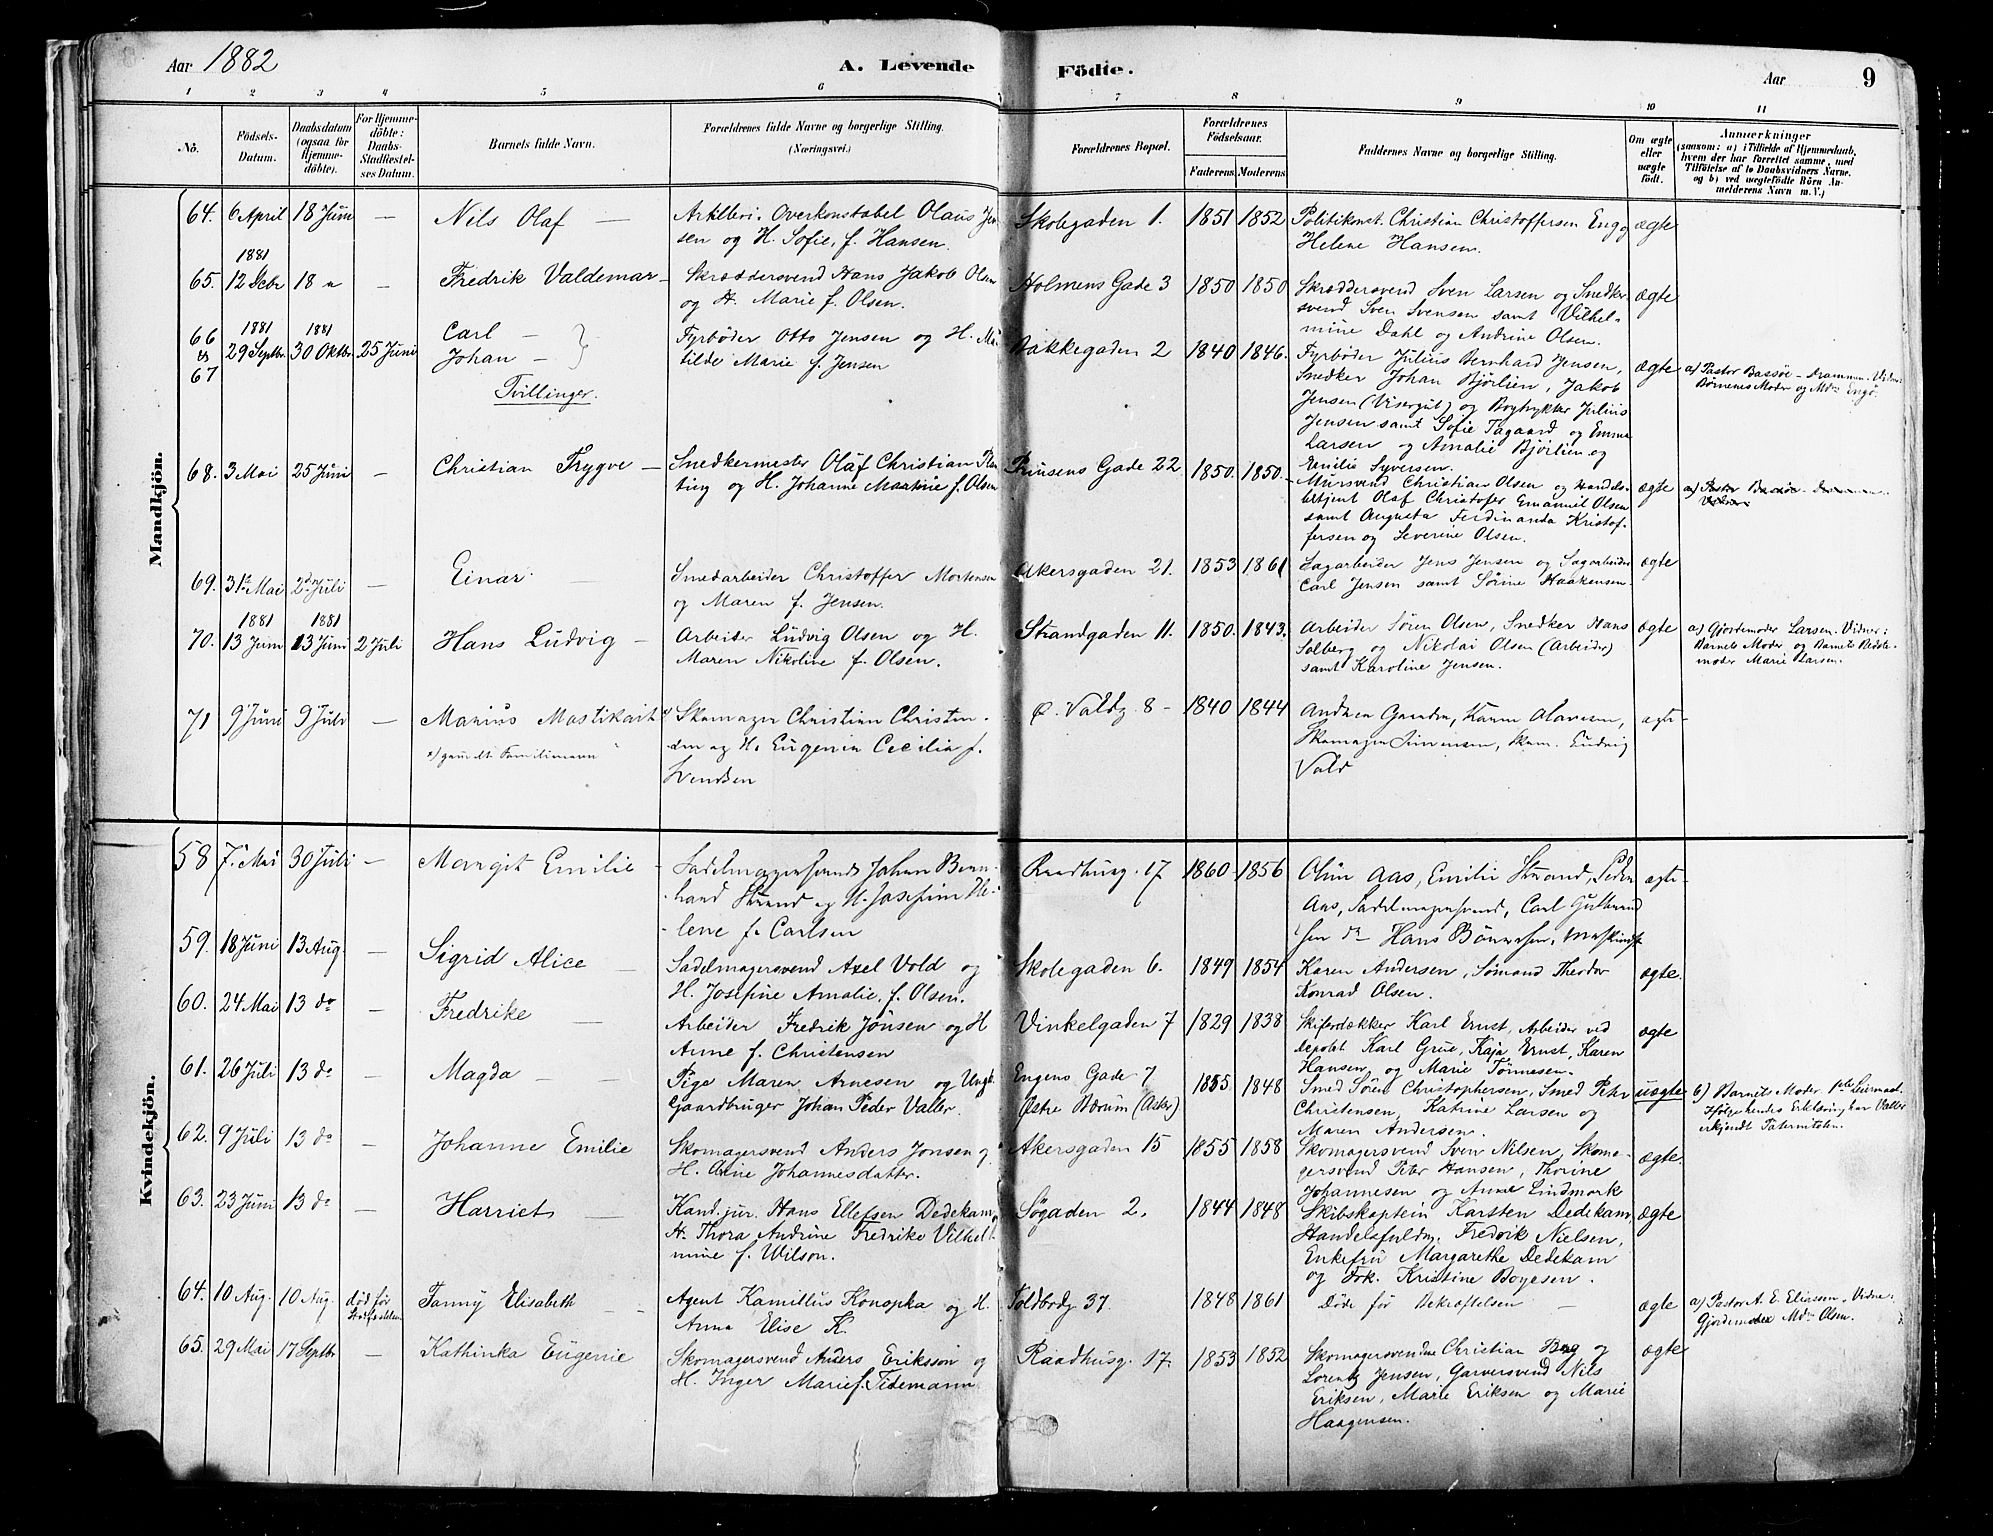 Aar 1882
A. Levende Födte.
Aar 9
1 2 3 4 5 6 7 8 9 10 11
No. Födsels-Datum. Daabsdatum (ogsaa for Hjemme-döbte). For Hjemme-döbte: Daabs-Stadfæstel-ses Datum. Barnets fulde Navn. Forældrenes fulde Navne og borgerlige Stilling. (Næringsvei.) Forældrenes Bopæl. Forældrenes Födselsaar. Faderens Moderens Faddernes Navne og borgerlige Stilling. Om ægte eller uægte født. Anmærkninger (saasom: a) i Tilfælde af Hjemmedaab, hvem der har forrettet samme, med Tilföielse af to Daabsvidners Navne, og b) ved uægtefödte Börn An-melderens Navn m. V.)
Mandkjön.
64. 6 April 18 Juni — Nils Olaf — Artilleri. Overkonstabel Olaus Jen- Skolegaden 1. 1851 1852 Politikonst. Christian Christoffersen Eng og ægte
sen og H. Sofie, f. Hansen. Helene Hansen.
1881
65. 12 Debr 18 " — Fredrik Valdemar — Skræddersvend Hans Jakob Olsen Holmens Gade 3 1850 1850 Skræddersvend Sven Larsen og Snedker- ægte
og H. Marie f. Olsen. svend Sven Svensen samt Vilhel-
mine Dahl og Andrine Olsen.
66 1881 1881 Carl — Fyrbøder Otto Jensen og H. Ma- Bakkegaden 2 1840 1846. Fyrbøder Julius Bernhard Jensen, ægte a) Pastor Bassøe - Drammen. Vidner:
& 29 Septbr 30 Oktbr 25 Juni Johan — tilde Marie f. Jensen Snedker Johan Bjørlien, Jakob Børnenes Moder og Md. Engø.
67 Tvillinger. Jensen (Visergut) og Bogtrykker Julius
Jensen samt Sofie Tagaard og Emma
Larsen og Amalie Bjørlien og
Emilie Syversen.
68. 3 Mai 25 Juni — Christian Trygve — Snedkermester Olaf Christian Plan- Prinsens Gade 22 1850. 1850. Mursvend Christian Olsen og Handels- ægte a) Pastor Bassøe - Drammen.
ting og H. Johanne Martine f. Olsen betjent Olaf Christofer Emanuel Olsen Vidner:
samt Augusta Ferdinanda Kristof-
fersen og Severine Olsen.
69. 31te Mai 2d Juli — Einar — Smedarbeider Christoffer Mortensen Akersgaden 21. 1853 1861 Sagarbeider Jens Jensen og Sagarbeider ægte
og Maren f. Jensen. Carl Jensen samt Sørine Haakensen.
1881 1881
70. 13 Juni 13 Juni 2 Juli Hans Ludvig — Arbeider Ludvig Olsen og H. Strandgaden 11. 1850. 1843. Arbeider Søren Olsen, Snedker Hans ægte a) Gjordemoder Larsen. Vidner:
Maren Nikoline f. Olsen. Solberg og Nikolai Olsen (Arbeider) Barnets Moder og Barnets Bedste-
samt Karoline Jensen. moder Marie Larsen.
71 9 Juni 9 Juli — Marius Mastikait x) Skomager Christian Christen- Valdg. 8 - 1840 1844 ægte
x) Familienavn sen og H. Eugenia Cecilia f. Skomager Simensen, Skom. Ludvig
Svendsen Vold
Kvindekjön.
58 7. Mai 30 Juli — Margit Emilie — Sadelmagersvend Johan Bern- Raadhusg. 17 1860 1856 Oline Aas, Emilie Strand, Peder ægte
hard Strand og H. Josefine He- Aas, Sadelmagersvend, Carl Gulbrand
lene f. Carlsen sen do Hans
59. 18 Juni 13 Aug. — Sigrid Alice — Sadelmagersvend Axel Vold og Skolegaden 6. 1849 1854 Karen Andersen, Sømand Theodor ægte.
H. Josefine Amalie, f. Olsen. Konrad Olsen.
60. 24 Mai 13 do — Fredrike — Arbeider Fredrik Jønsen og H Vinkelgaden 7 1829 1838 Skiferdækker Karl Ernst, Arbeider ved ægte
Anne f. Christensen Depotet Karl Grue, Kaja Ernst, Karen
Hansen og Marie Tønnesen.
61. 26 Juli 13 do — Magda — Pige Maren Arnesen og Ungk. Engens Gade 7 1855 1848 Smed Søren Christophersen, Smed Peter uægte b) Barnets Moder 1ste Leiermaal.
Gaardbruger Johan Peder Valler. Østre Bærum (Asker) Christensen, Katrine Larsen og Ifølge hendes Erklæring har Valler
Maren Andersen. erkjendt Paterniteten.
62. 9 Juli 13 do — Johanne Emilie Skomagersvend Anders Jonsen og Akersgaden 15 1855 1858 Skomagersvend Sven Nilsen, Skoma- ægte.
H. Anne Johannesdatter. gersvend Peter Hansen, Thorine
Johannesen og Anne Lindmork
63. 23 Juni 13 do — Harriet — Kand. jur. Hans Ellefsen Dedekam, Søgaden 2. 1844 1848 Skibskaptein Karsten Dedekam, ægte
H. Thora Andrine Fredrike Vilhel- Handelsfuldm. Fredrik Nielsen,
mine f. Wilson. Enkefru Margarethe Dedekam
og Frk. Kristine Boyesen.
64. 10 Aug. 10 Aug. død før Stadfæstelsen Fanny Elisabeth — Agent Kamillus Konopka og H. Toldbodg 37. 1848 1861 Døde før Bekræftelsen — ægte a) Pastor A. E. Eliassen. Vidne:
Anna Elise K. Gjordemoder Md. Olsen.
65. 29 Mai 17 Septbr — Kathinka Eugenie Skomagersvend Anders Eriksson og Raadhusg. 17. 1853 1852 Skomagersvendene Christian Bag og ægte
H. Inger Marie f. Tidemann Lorentz Jensen, Garversvend Nils
Eriksen, Marie Eriksen og Marie
Haagensen.